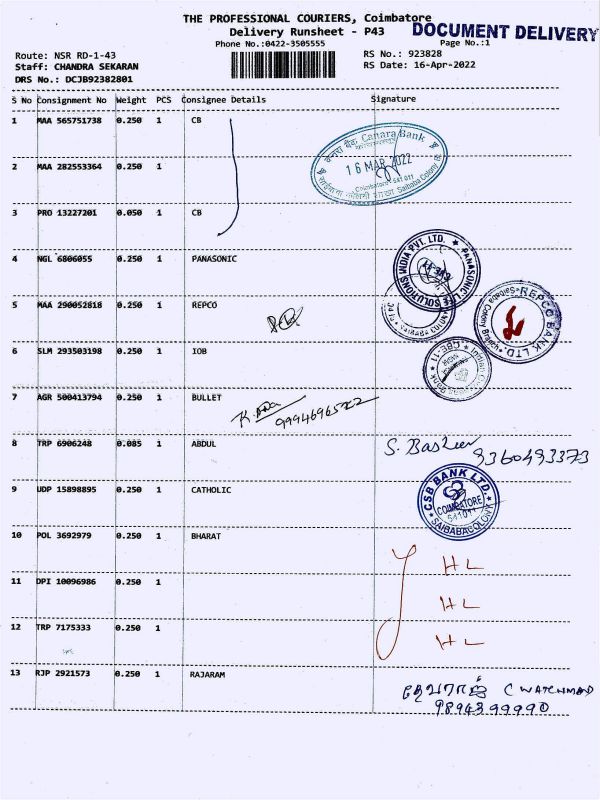 THE PROFESSIONAL COURIERS, Coimbatore
DOCUMENT DELIVERY
Delivery Runsheet - P43
Phone No.:0422-3505555
Page No.:1
Route: NSR RD-1-43
RS No.: 923828
Staff: CHANDRA SEKARAN
RS Date: 16-Apr-2022
DRS No.: DCJB92382801
S No Consignment No Weight PCS Consignee Details Signature
1 MAA 565751738 0.250 1 CB
Canara Bank
16 MAR 2022
Coimbatore - 641 011
Saibaba Colony
2 MAA 282553364 0.250 1
3 PRO 13227201 0.050 1 CB
4 NGL 6806055 0.250 1 PANASONIC
PANASONIC LIFE SOLUTIONS INDIA PVT. LTD.
5 MAA 290052818 0.250 1 REPCO
REPCO BANK LTD.
Saibaba Colony
6 SLM 293503198 0.250 1 IOB
CBE-11
7 AGR 500413794 0.250 1 BULLET
8 TRP 6906248 0.085 1 ABDUL
S. Basheer
9360493373
9 UDP 15898895 0.250 1 CATHOLIC
CSB BANK LTD.
COIMBATORE
641011
SAIBABACOLONY
10 POL 3692979 0.250 1 BHARAT
HL
11 DPI 10096986 0.250 1
HL
12 TRP 7175333 0.250 1
HL
13 RJP 2921573 0.250 1 RAJARAM